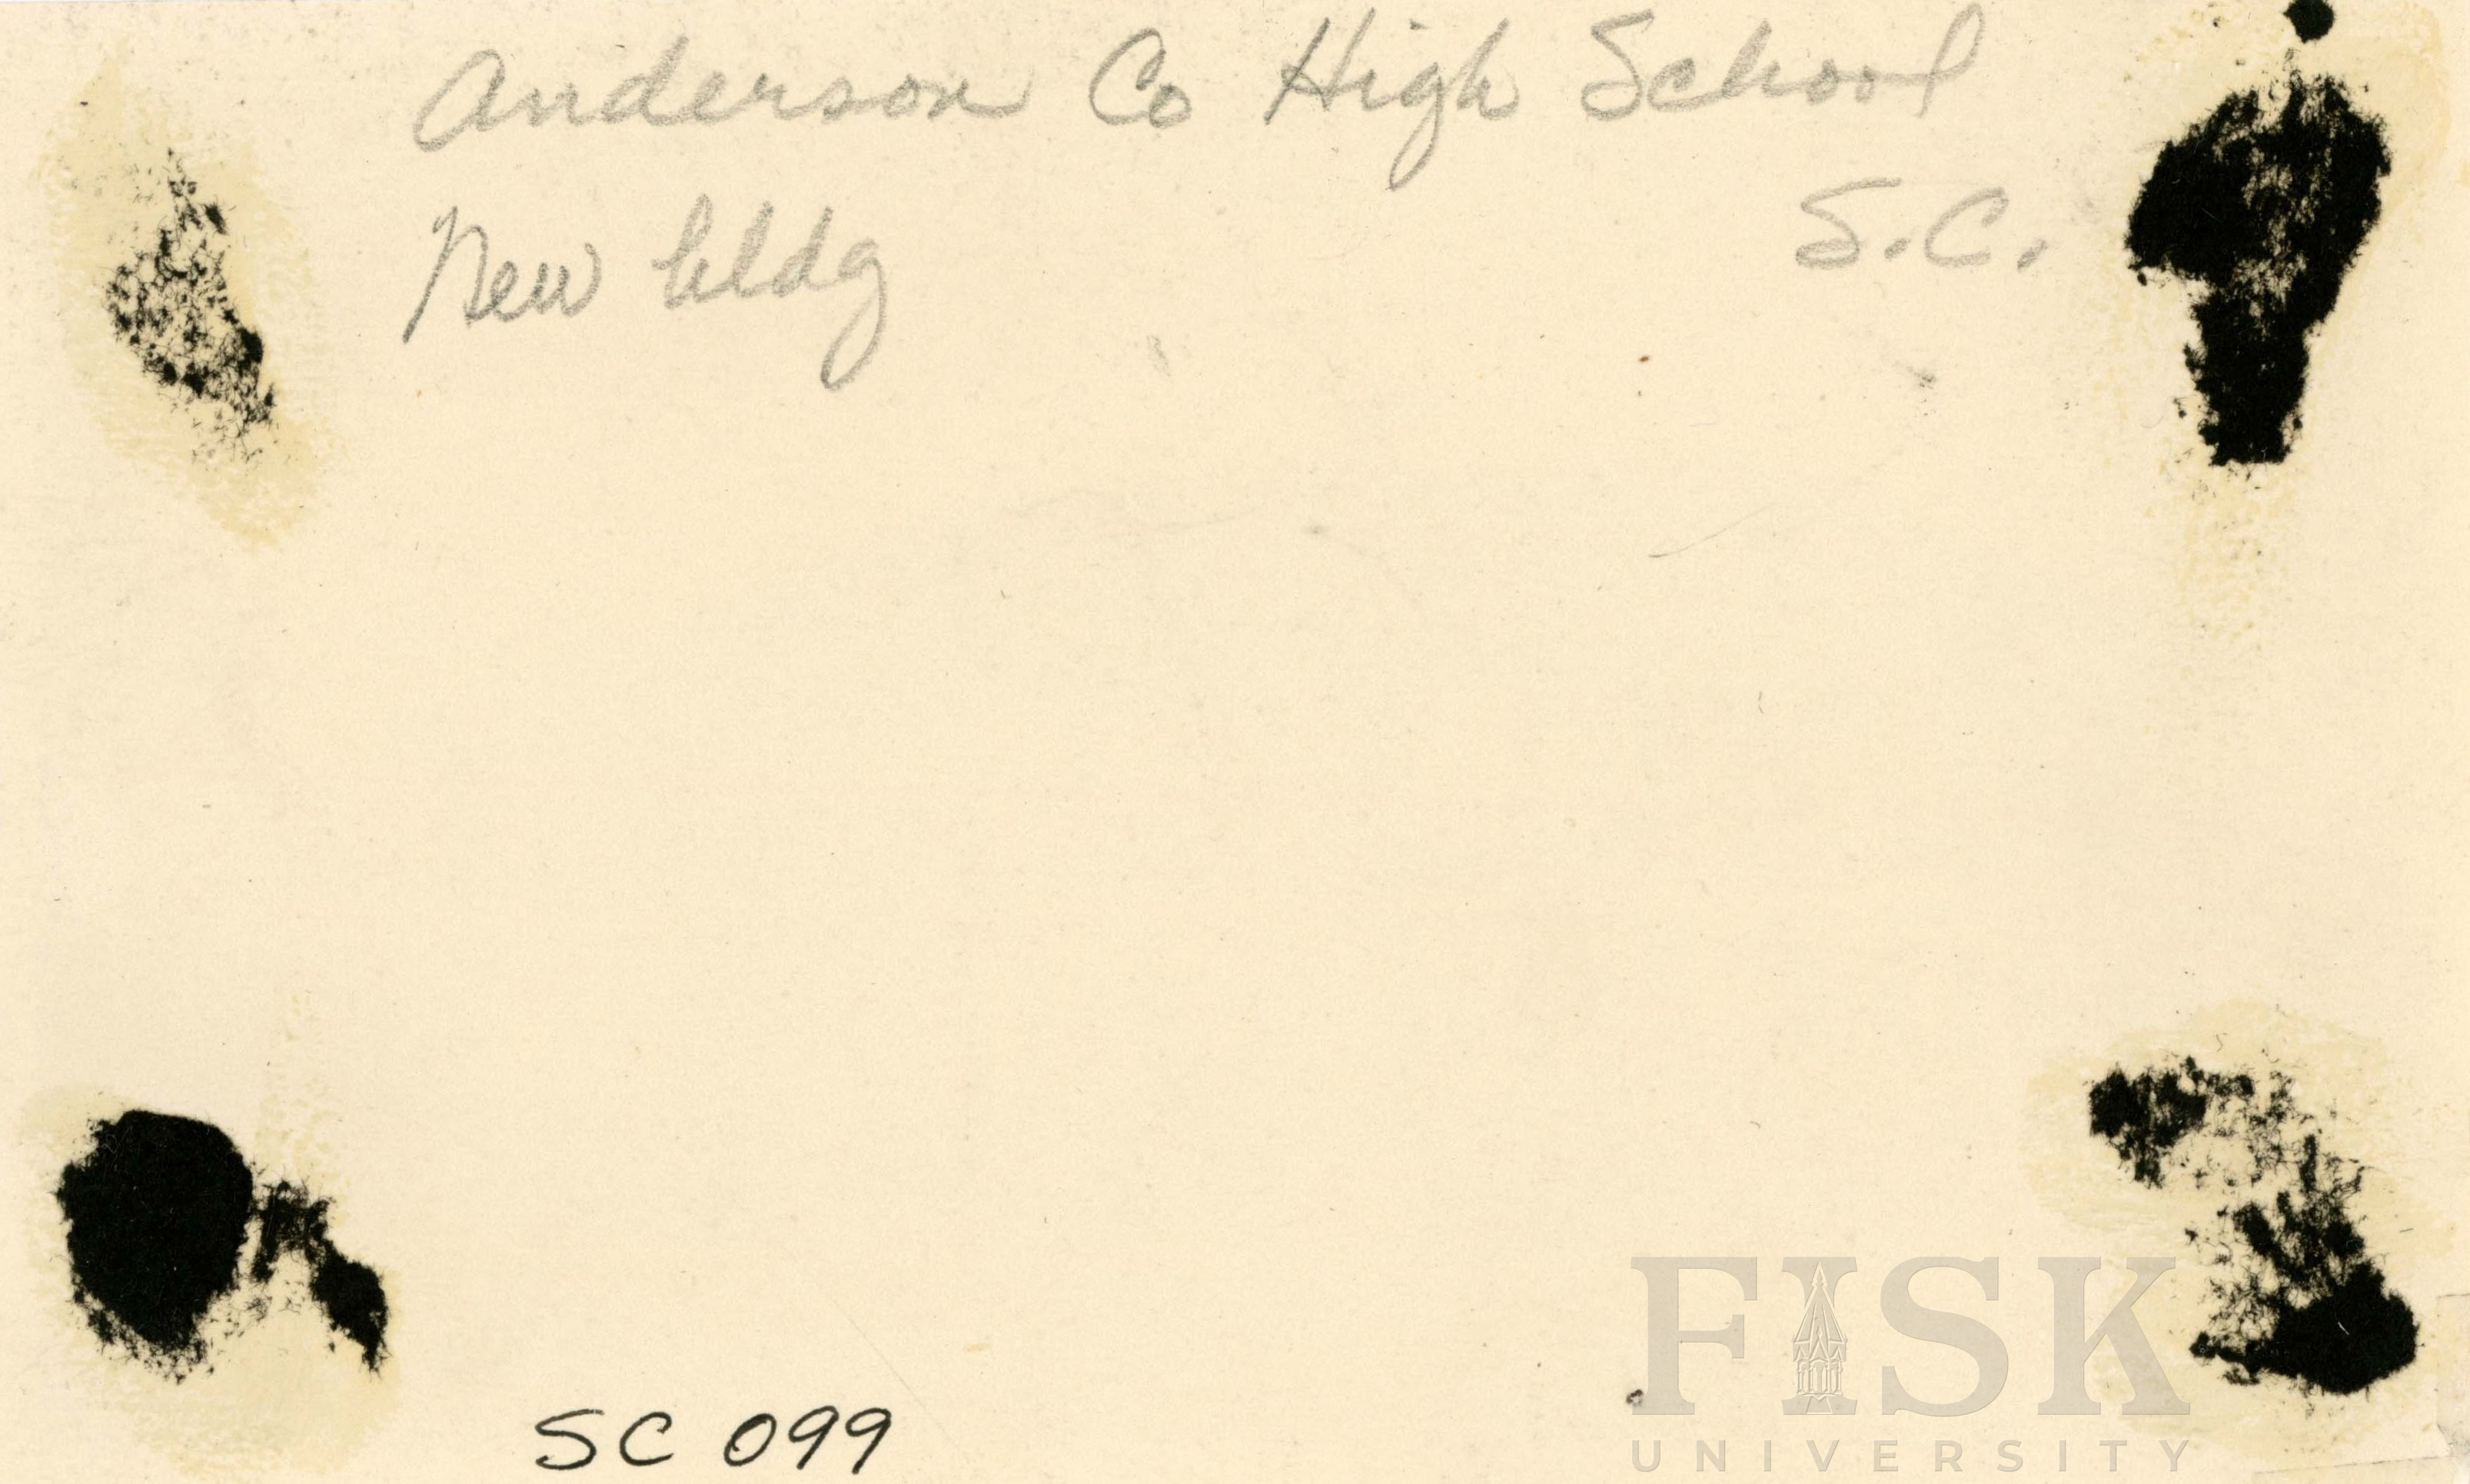 Anderson Co High School
S.C.
New bldg
SC 099
FISK
UNIVERSITY